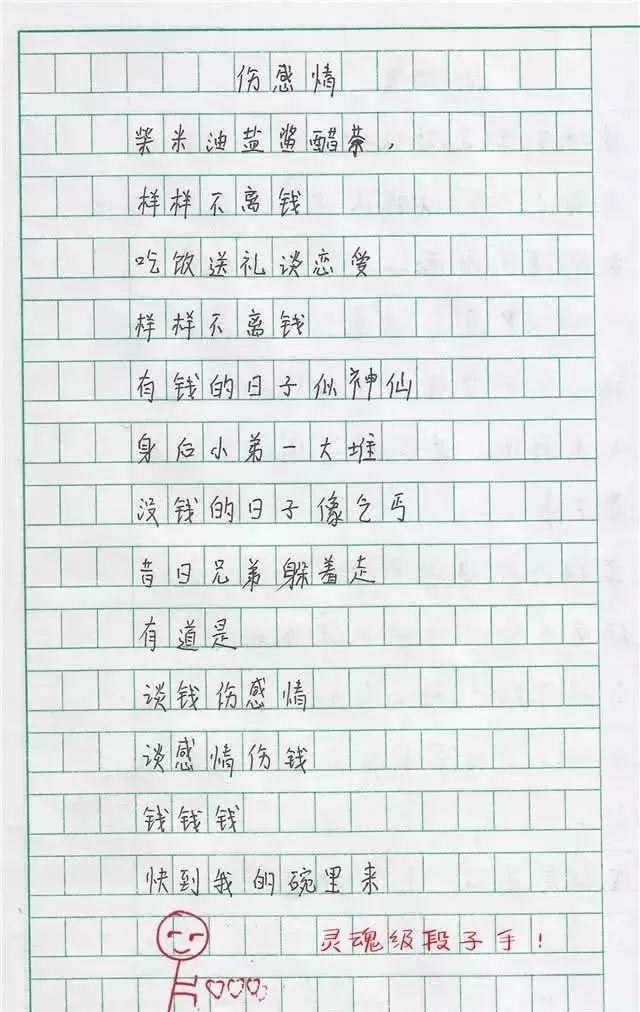 伤感情
柴米油盐酱醋茶,
样样不离钱
吃饭送礼谈恋爱
样样不离钱
有钱的日子似神仙
身后小弟一大堆
没钱的日子像乞丐
昔日兄弟躲着走
有道是
谈钱伤感情
谈感情伤钱
钱钱钱
快到我的碗里来
灵魂级段子手!